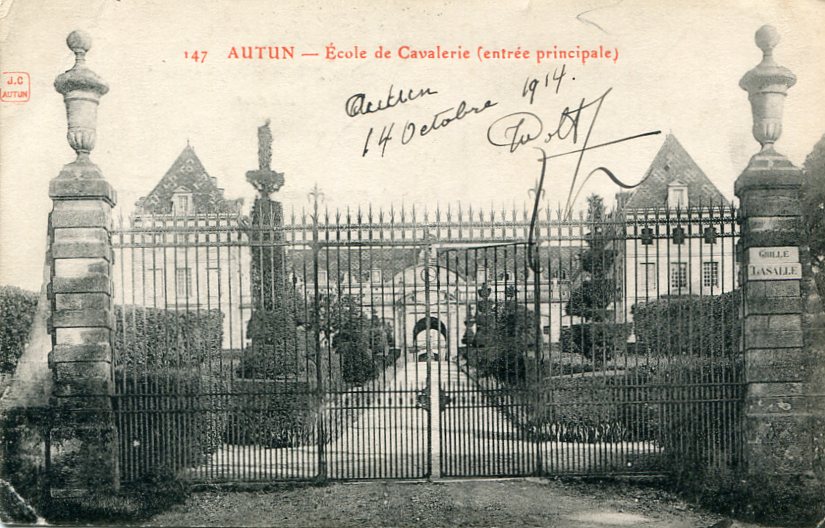 147 AUTUN — École de Cavalerie (entrée principale)
J.C
AUTUN
Autun
14 Octobre 1914
GRILLE
LASALLE